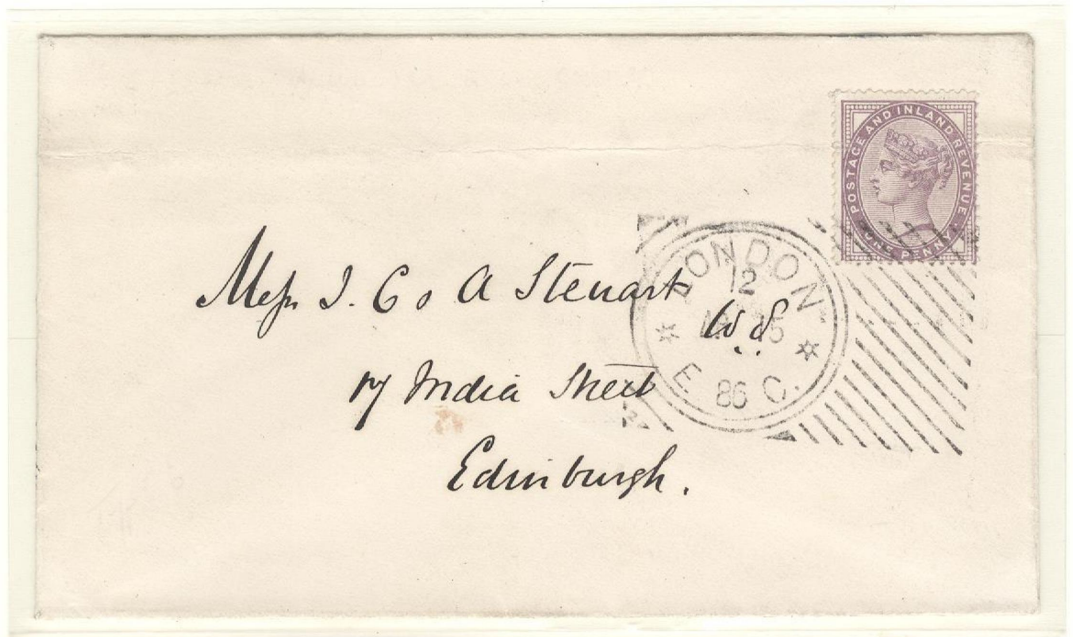 POSTAGE AND INLAND REVENUE
ONE PENNY
LONDON
12
E. 86 C.
Mess J. & A Steuart
W.S.
17 India Street
Edinburgh.